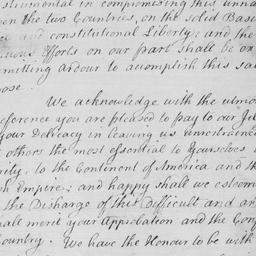 strumental in compromising this unna
een the two Countries, on the solid Basi
ce and constitutional Liberty; and the
Efforts on our part shall be ex
mitting Ardour to accomplish this sal
pose.
We acknowledge with the utmos
eference you are pleased to pay to our Ju
your Delicacy in leaving us unrestrained
others the most essential to Yourselves
ity, to the Continent of America and th
h Empire; and happy shall we esteem
the Disharge of this difficult and ar
hall merit your Approbation and the Conf
Country. We have the Honour to be with